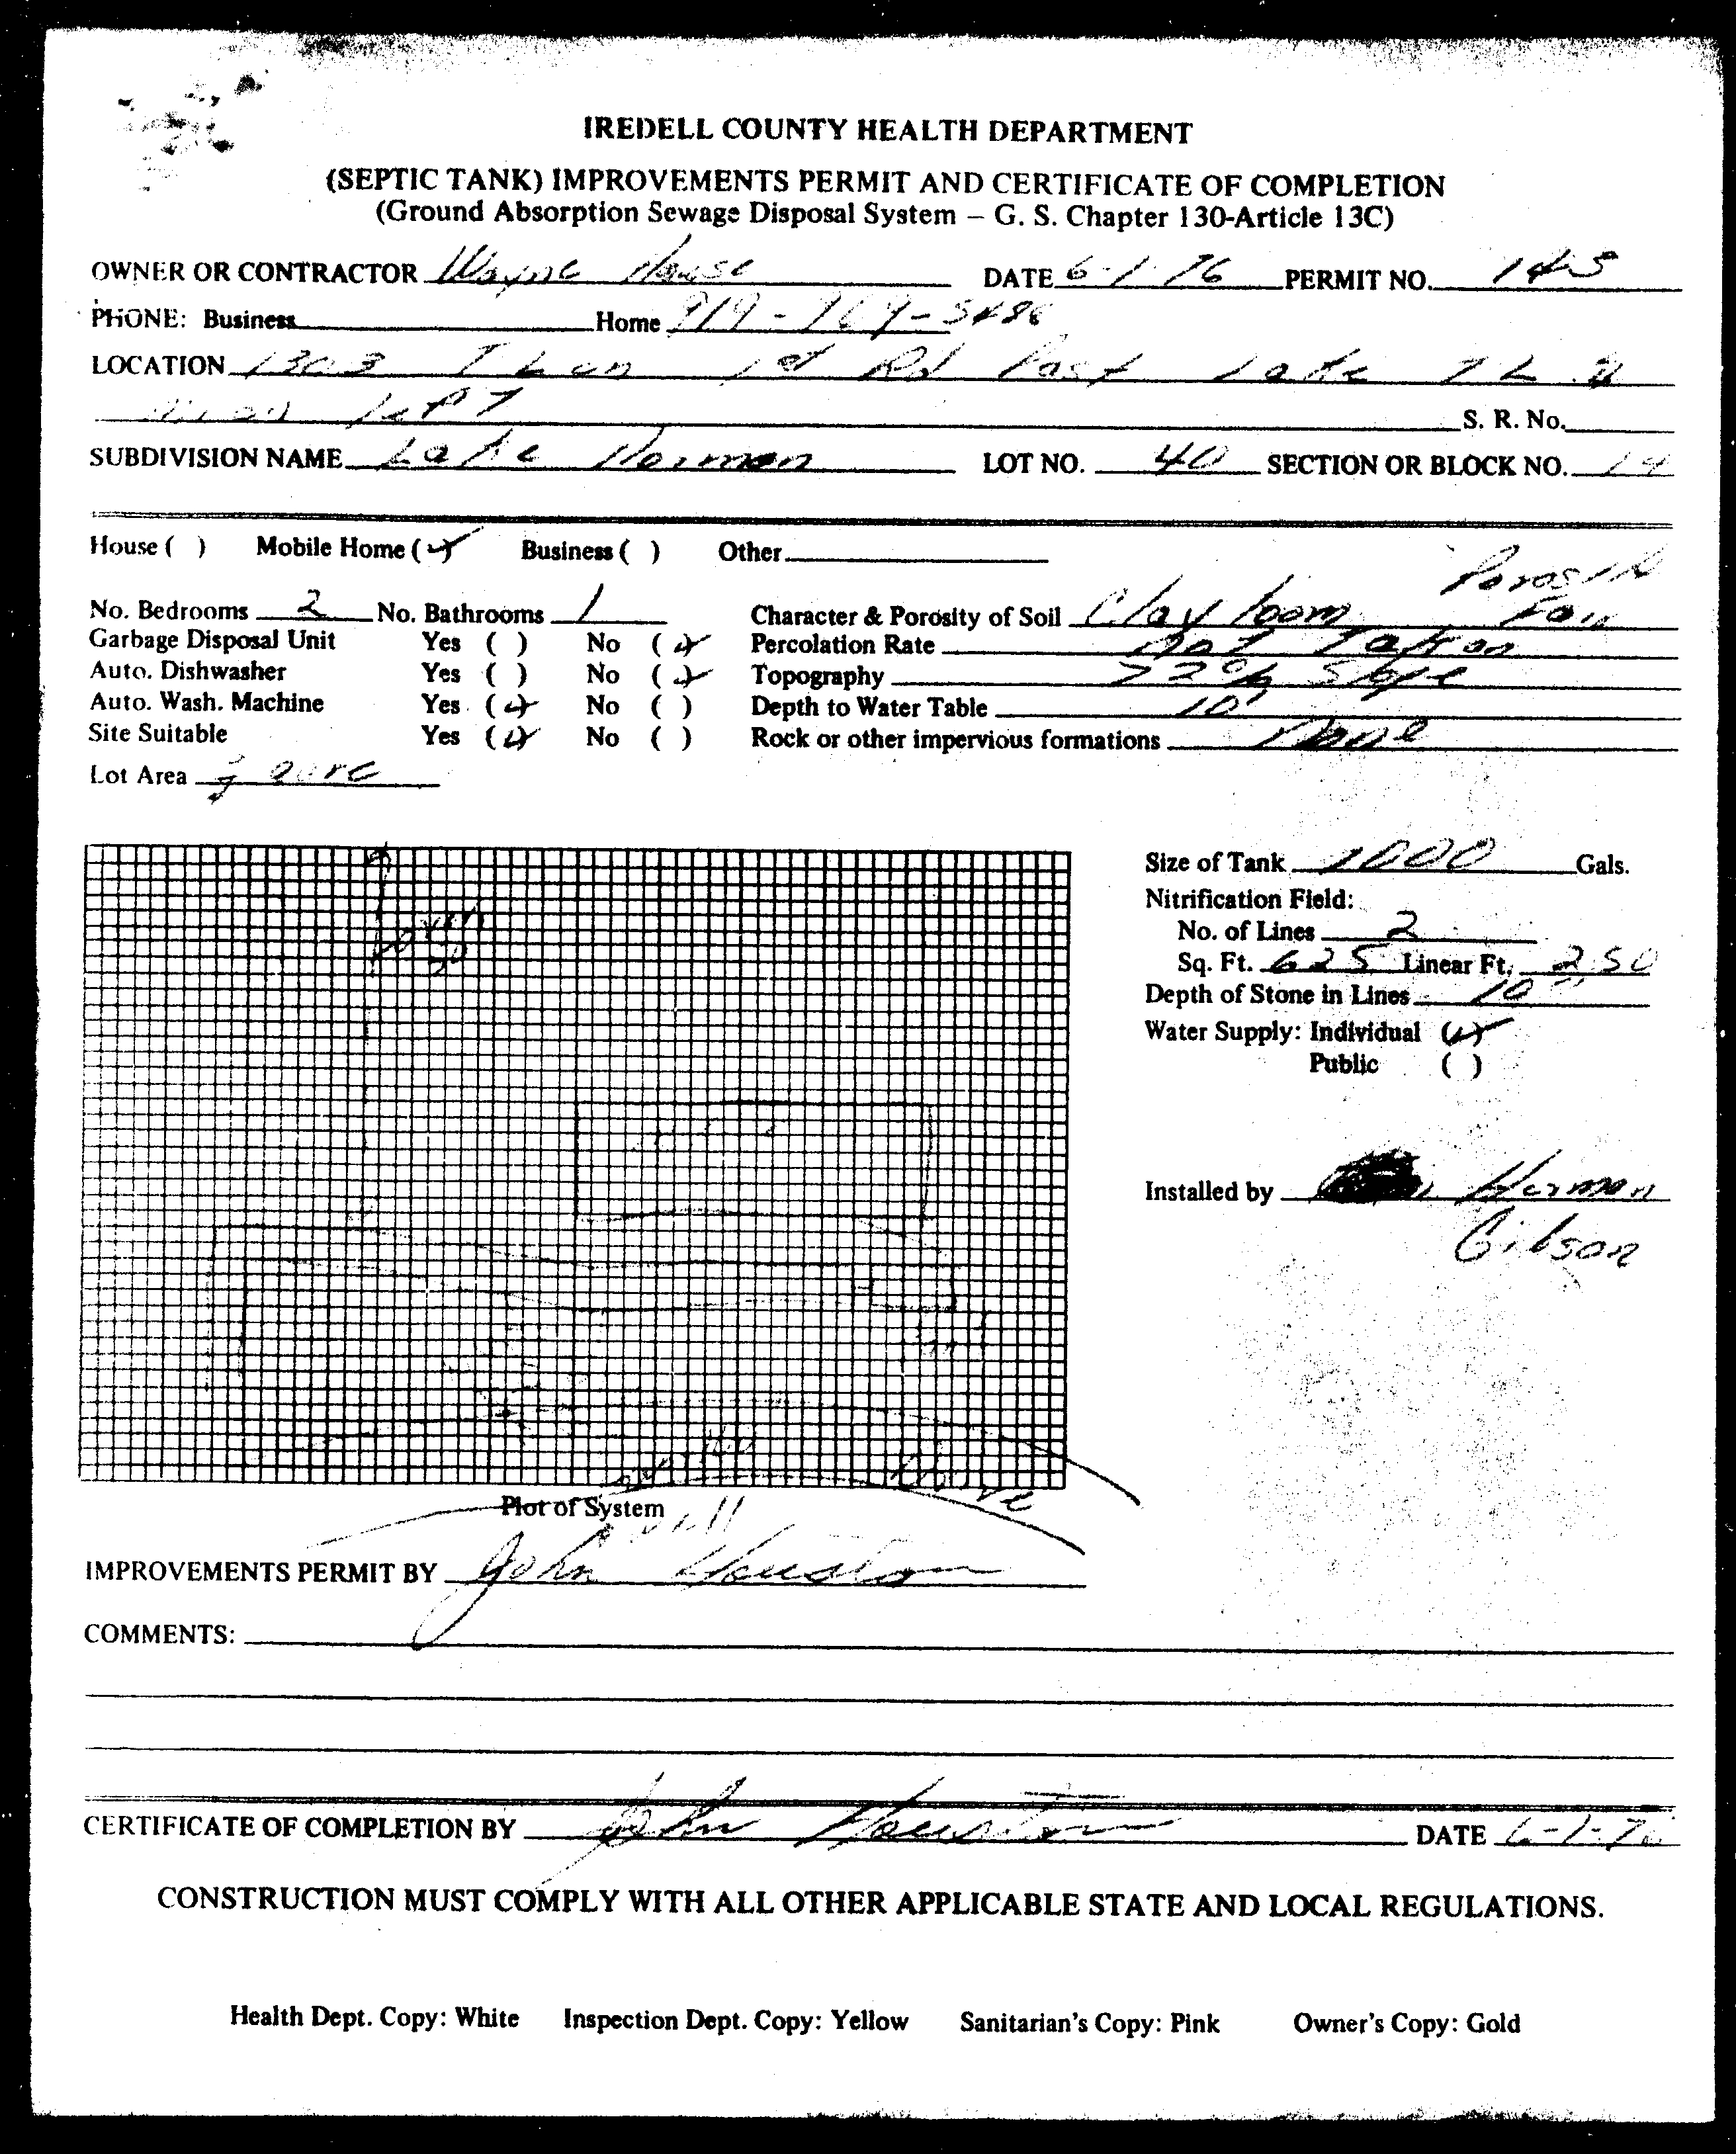 IREDELL COUNTY HEALTH DEPARTMENT
(SEPTIC TANK) IMPROVEMENTS PERMIT AND CERTIFICATE OF COMPLETION
(Ground Absorption Sewage Disposal System – G. S. Chapter 130-Article 13C)
OWNER OR CONTRACTOR Wayne House DATE 6-1-76 PERMIT NO. 143
PHONE: Business Home 919-769-5486
LOCATION 1303 T L on 1st Rd Past Lake T L
left S. R. No.
SUBDIVISION NAME Lake Norman LOT NO. 40 SECTION OR BLOCK NO. 14
House ( ) Mobile Home (✓) Business ( ) Other
Porosity
No. Bedrooms 2 No. Bathrooms 1 Character & Porosity of Soil Clay loom Fair
Garbage Disposal Unit Yes ( ) No (✓) Percolation Rate Not Taken
Auto. Dishwasher Yes ( ) No (✓) Topography >2% Slope
Auto. Wash. Machine Yes (✓) No ( ) Depth to Water Table 10'
Site Suitable Yes (✓) No ( ) Rock or other impervious formations None
Lot Area acre
Size of Tank 1000 Gals.
Nitrification Field:
No. of Lines 2
Sq. Ft. 625 Linear Ft. 250
Depth of Stone in Lines 10"
Water Supply: Individual (✓)
Public ( )
Installed by Herman
Gibson
Plot of System
well
IMPROVEMENTS PERMIT BY John Houston
COMMENTS:
CERTIFICATE OF COMPLETION BY John Houston DATE 6-1-76
CONSTRUCTION MUST COMPLY WITH ALL OTHER APPLICABLE STATE AND LOCAL REGULATIONS.
Health Dept. Copy: White Inspection Dept. Copy: Yellow Sanitarian's Copy: Pink Owner's Copy: Gold